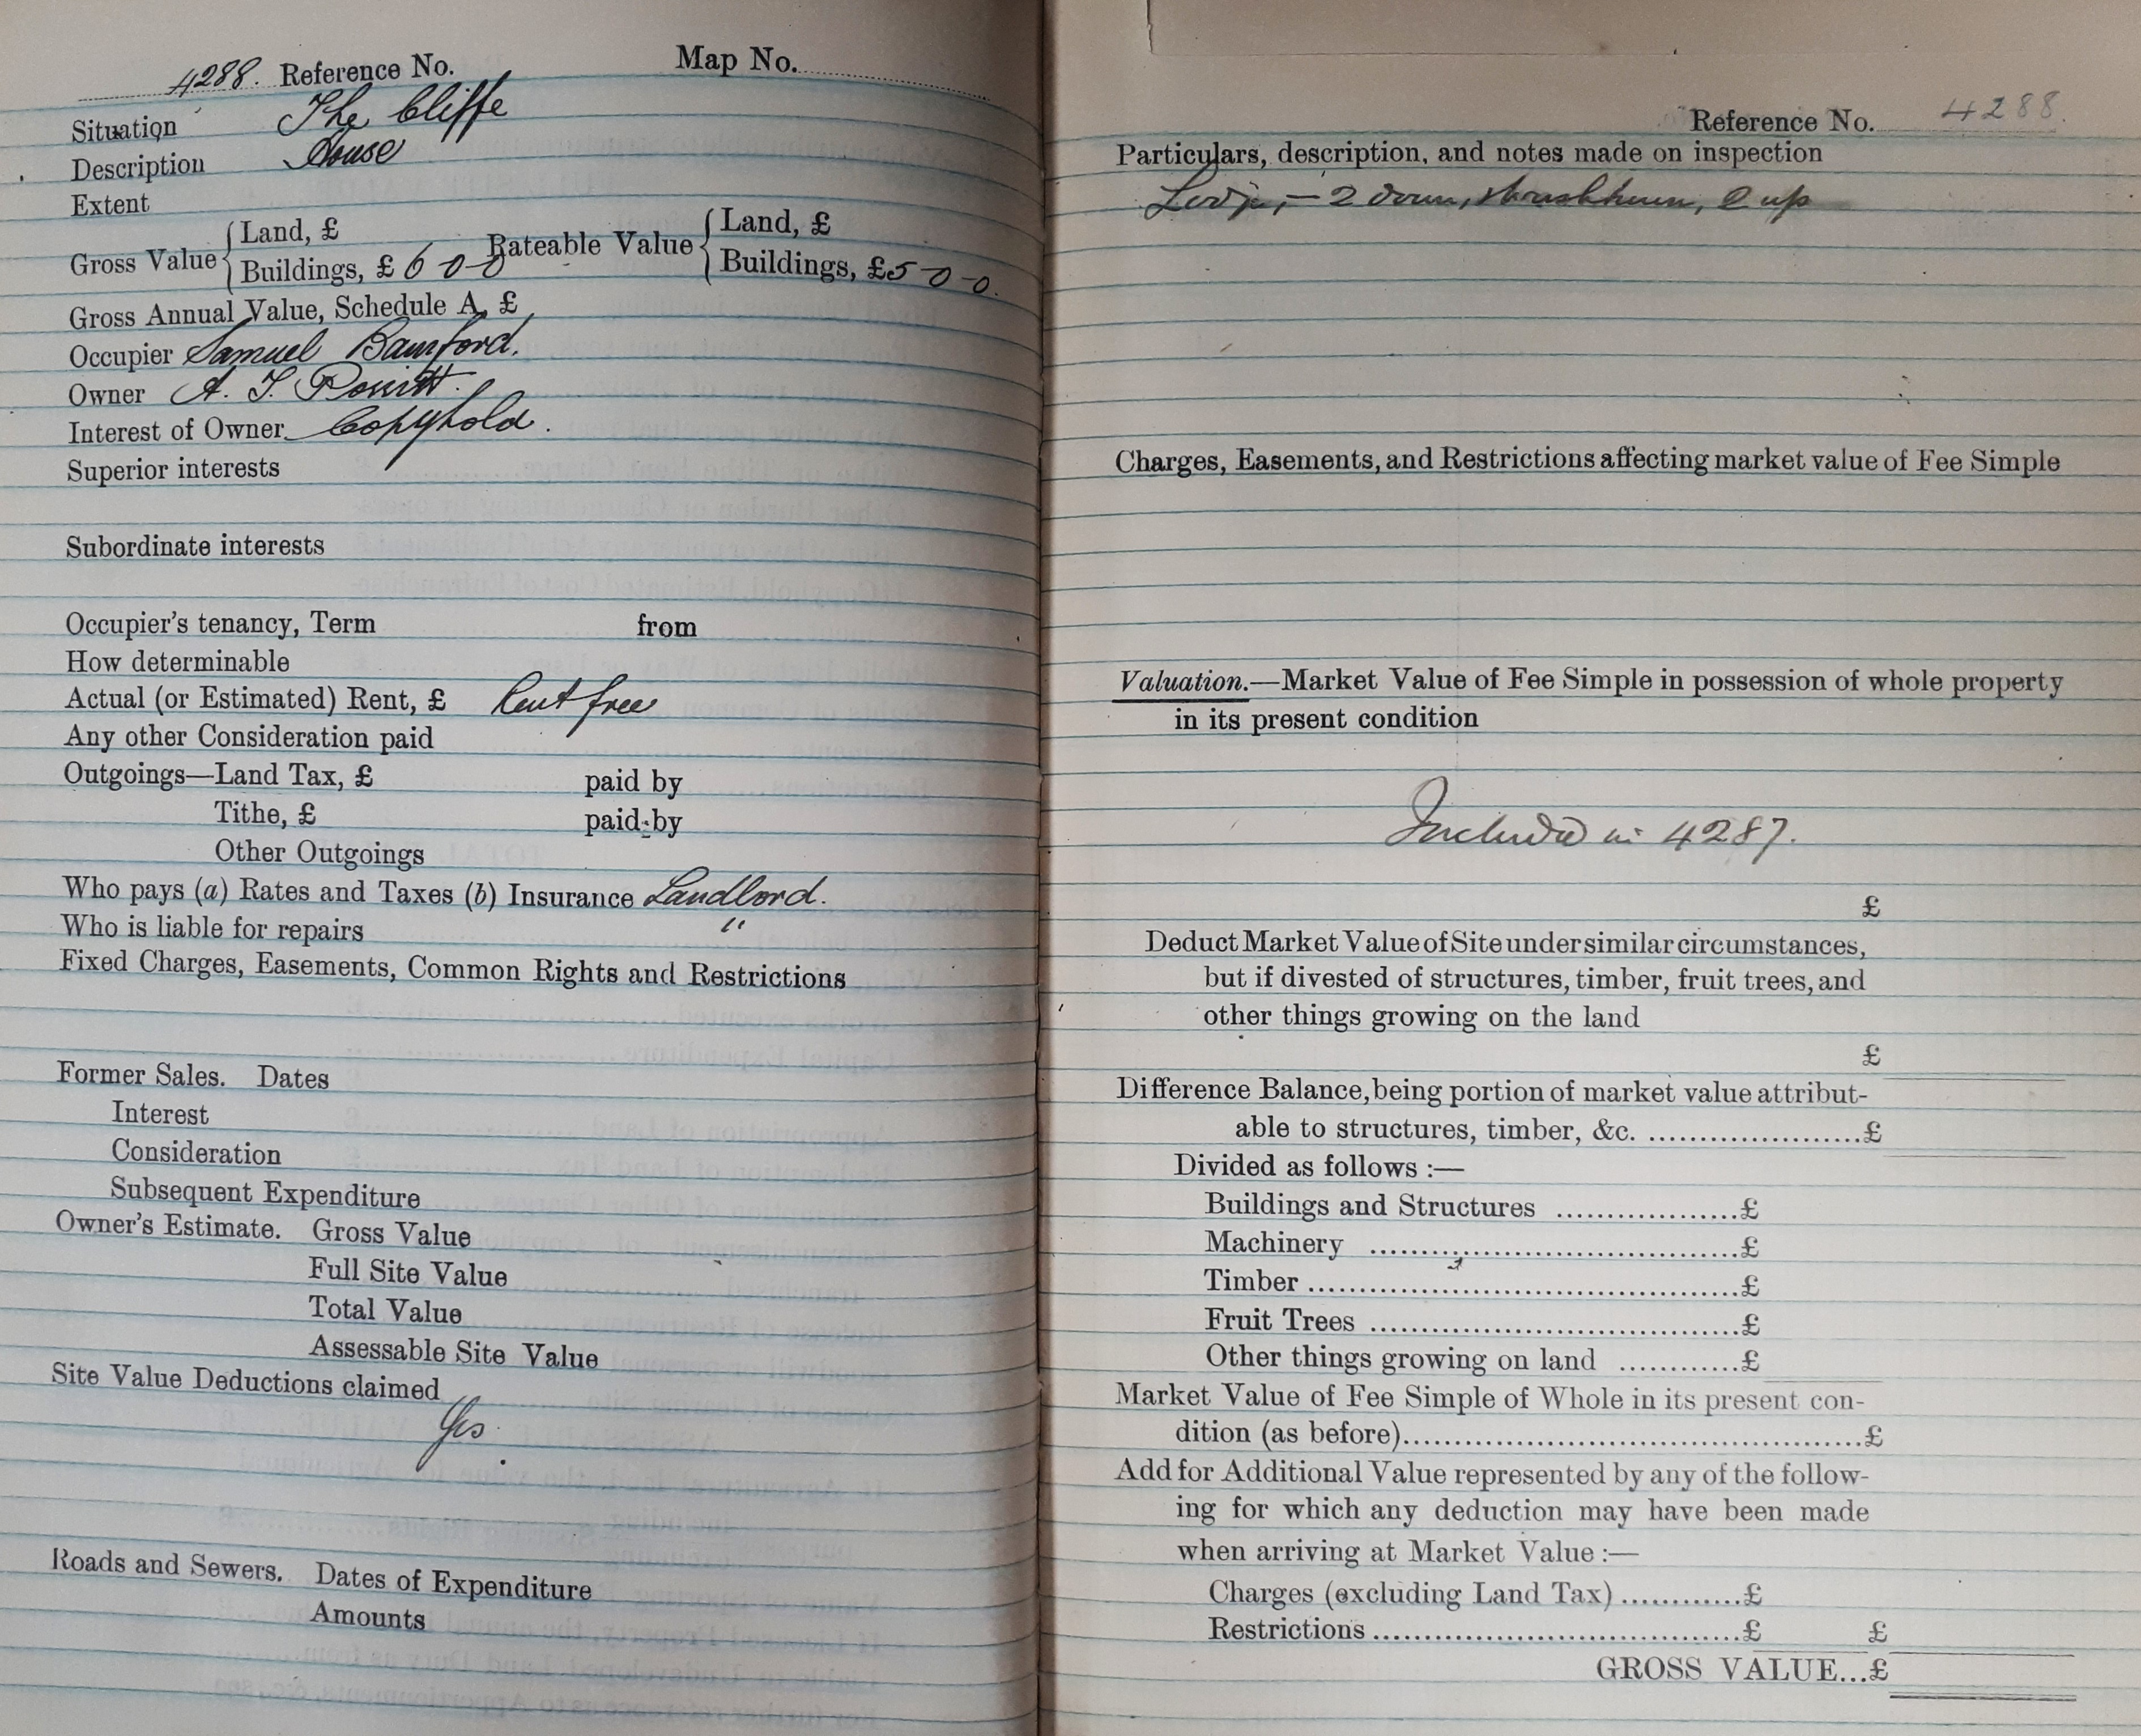 4288. Reference No. Map No.
Situation The Cliffe
Description House
Extent
Gross Value { Land, £ Rateable Value { Land, £
Buildings, £ 6-0-0 Buildings, £5-0-0.
Gross Annual Value, Schedule A, £
Occupier Samuel Bamford.
Owner A. J.
Interest of Owner Copyhold.
Superior interests
Subordinate interests
Occupier's tenancy, Term from
How determinable
Actual (or Estimated) Rent, £ Rent free
Any other Consideration paid
Outgoings—Land Tax, £ paid by
Tithe, £ paid by
Other Outgoings
Who pays (a) Rates and Taxes (b) Insurance Landlord.
Who is liable for repairs "
Fixed Charges, Easements, Common Rights and Restrictions
Former Sales. Dates
Interest
Consideration
Subsequent Expenditure
Owner's Estimate. Gross Value
Full Site Value
Total Value
Assessable Site Value
Site Value Deductions claimed
Yes.
Roads and Sewers. Dates of Expenditure
Amounts
Reference No. 4288.
Particulars, description, and notes made on inspection
Lodge,- 2 down, washhouse, 2 up
Charges, Easements, and Restrictions affecting market value of Fee Simple
Valuation.—Market Value of Fee Simple in possession of whole property
in its present condition
Included in 4287.
£
Deduct Market Value of Site under similar circumstances,
but if divested of structures, timber, fruit trees, and
other things growing on the land
£
Difference Balance, being portion of market value attribut-
able to structures, timber, &c. ......................£
Divided as follows :—
Buildings and Structures ...................£
Machinery ......................................£
Timber ............................................£
Fruit Trees ......................................£
Other things growing on land ............£
Market Value of Fee Simple of Whole in its present con-
dition (as before)................................................£
Add for Additional Value represented by any of the follow-
ing for which any deduction may have been made
when arriving at Market Value :—
Charges (excluding Land Tax) ............£
Restrictions .....................................£ £
GROSS VALUE...£